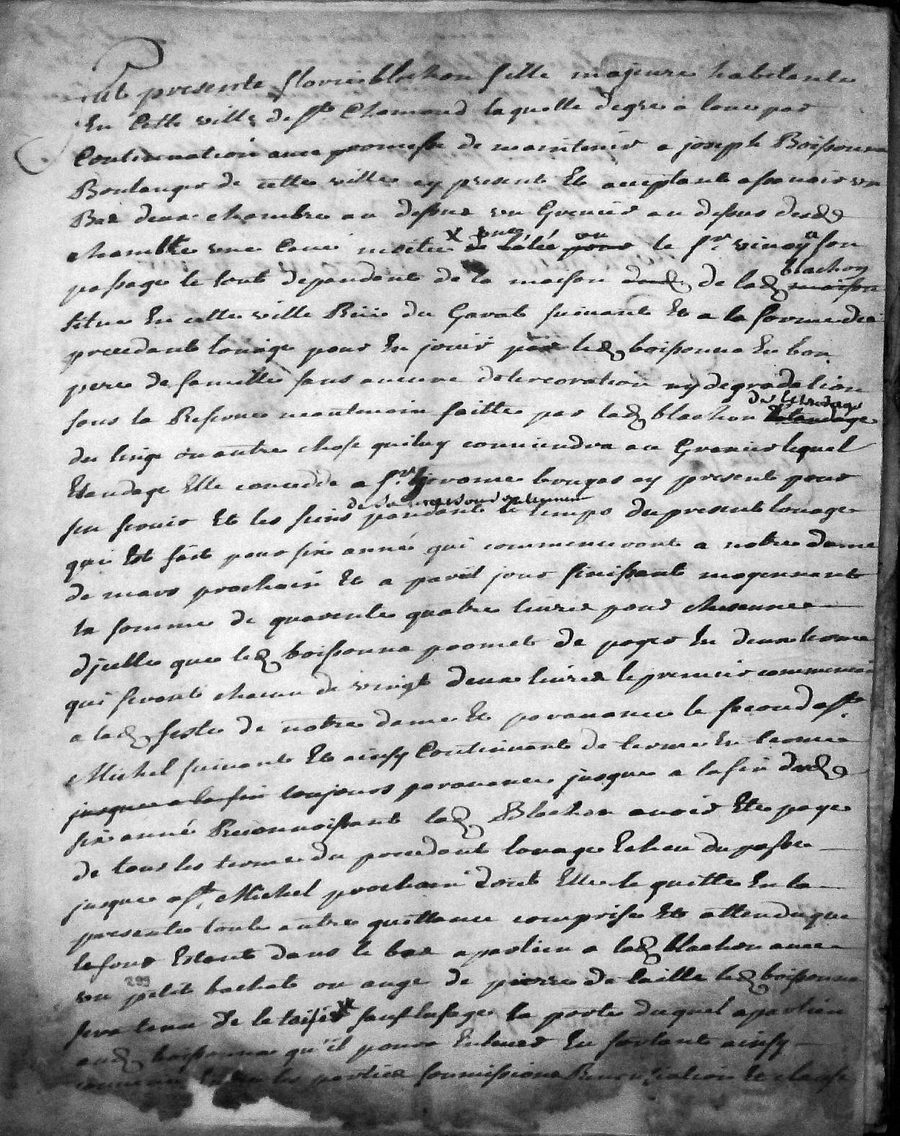 fut presente florie blachon fille majeure habitante
En Cette ville de St Chamond laquelle de gre a loué par
Continuation avec promesse de maintenir a joseph Boissonna
Boulanger de cette ville cy present Et acceptant assavoir un
Bas deux chambre au dessus un Grenier au dessus desd
chambre une Cave le Sr son
passage le tout dependant de la maison de lad blachon
situé En cette ville Rüe du Garat suivant Et a la forme du
precedant louage pour En jouir par led boissonna En bon
pere de famille sans aucune deterioration ny degradation
sous la Reserve neantmoin faitte par lad blachon de letendage
du linge ou autre chose quiluy conviendra au Grenier lequel
Etandage Elle concede a Sr cy present pour
sen servir Et les siens pendant le temps du present louage
qui Est fait pour six année qui commenceront a notre dame
de mars prochain Et a pareil jour finissant moyennant
la somme de quarente quatre livres pour chacunne
djcelle que led boissonna promet de payer En deux terme
qui seront chacun de vingt deux livres le premier commencera
a lad feste de notre dame Et par avance le second a St
Michel suivant Et ainsy Continuant de terme En terme
jusques a la fin toujours par avance jusques a la fin desd
six année Reconnoissant lad Blachon avoir Eté payé
de tous les terme du precedant louage Echeu du passé
jusques a St Michel prochain dont Elle le quitte En la
presente toute autre quittance comprise Et attendu que
le four Estant dans le bas apartien a lad blachon avec
un petit bachat ou auge de pierre de taille led boissonna
sera tenu de le laisser sauf la porte duquel apartien
aud boissonna qu'il poura Enlever En sortant ainsy
les parties soumissions Renonciation Et clause
299